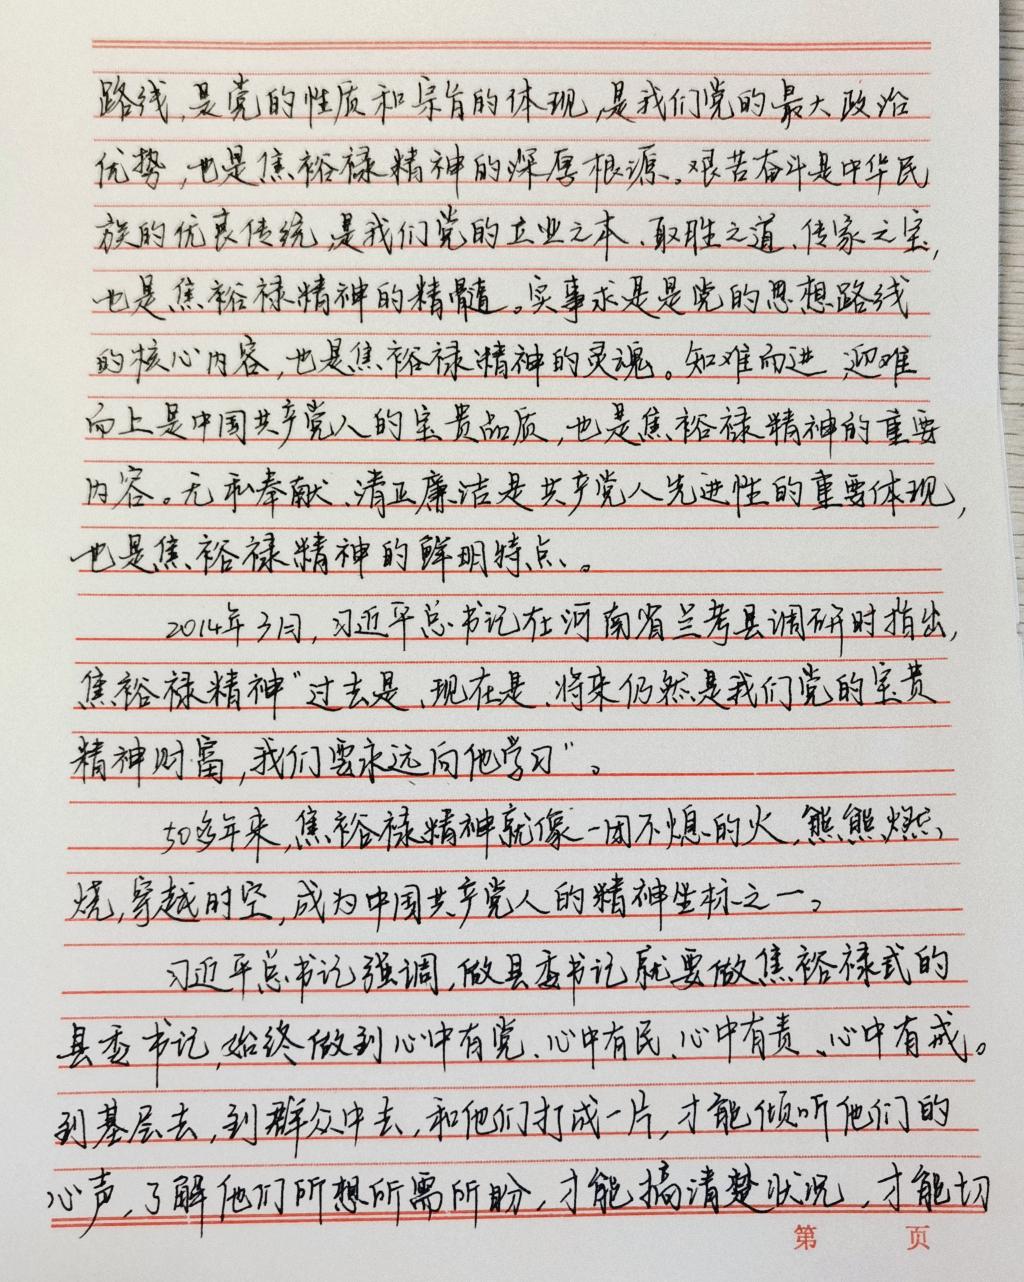 路线,是党的性质和宗旨的体现,是我们党的最大政治
优势,也是焦裕禄精神的深厚根源。艰苦奋斗是中华民
族的优良传统,是我们党的立业之本、取胜之道、传家之宝,
也是焦裕禄精神的精髓。实事求是是党的思想路线
的核心内容,也是焦裕禄精神的灵魂。知难而进、迎难
而上是中国共产党人的宝贵品质,也是焦裕禄精神的重要
内容。无私奉献、清正廉洁是共产党人先进性的重要体现,
也是焦裕禄精神的鲜明特点。
2014年3月,习近平总书记在河南省兰考县调研时指出,
焦裕禄精神“过去是、现在是、将来仍然是我们党的宝贵
精神财富,我们要永远向他学习”。
50多年来,焦裕禄精神就像一团不熄的火,熊熊燃
烧,穿越时空,成为中国共产党人的精神坐标之一。
习近平总书记强调,做县委书记就要做焦裕禄式的
县委书记,始终做到心中有党、心中有民、心中有责、心中有戒。
到基层去,到群众中去,和他们打成一片,才能倾听他们的
心声,了解他们所想所需所盼,才能搞清楚状况,才能切
第 页